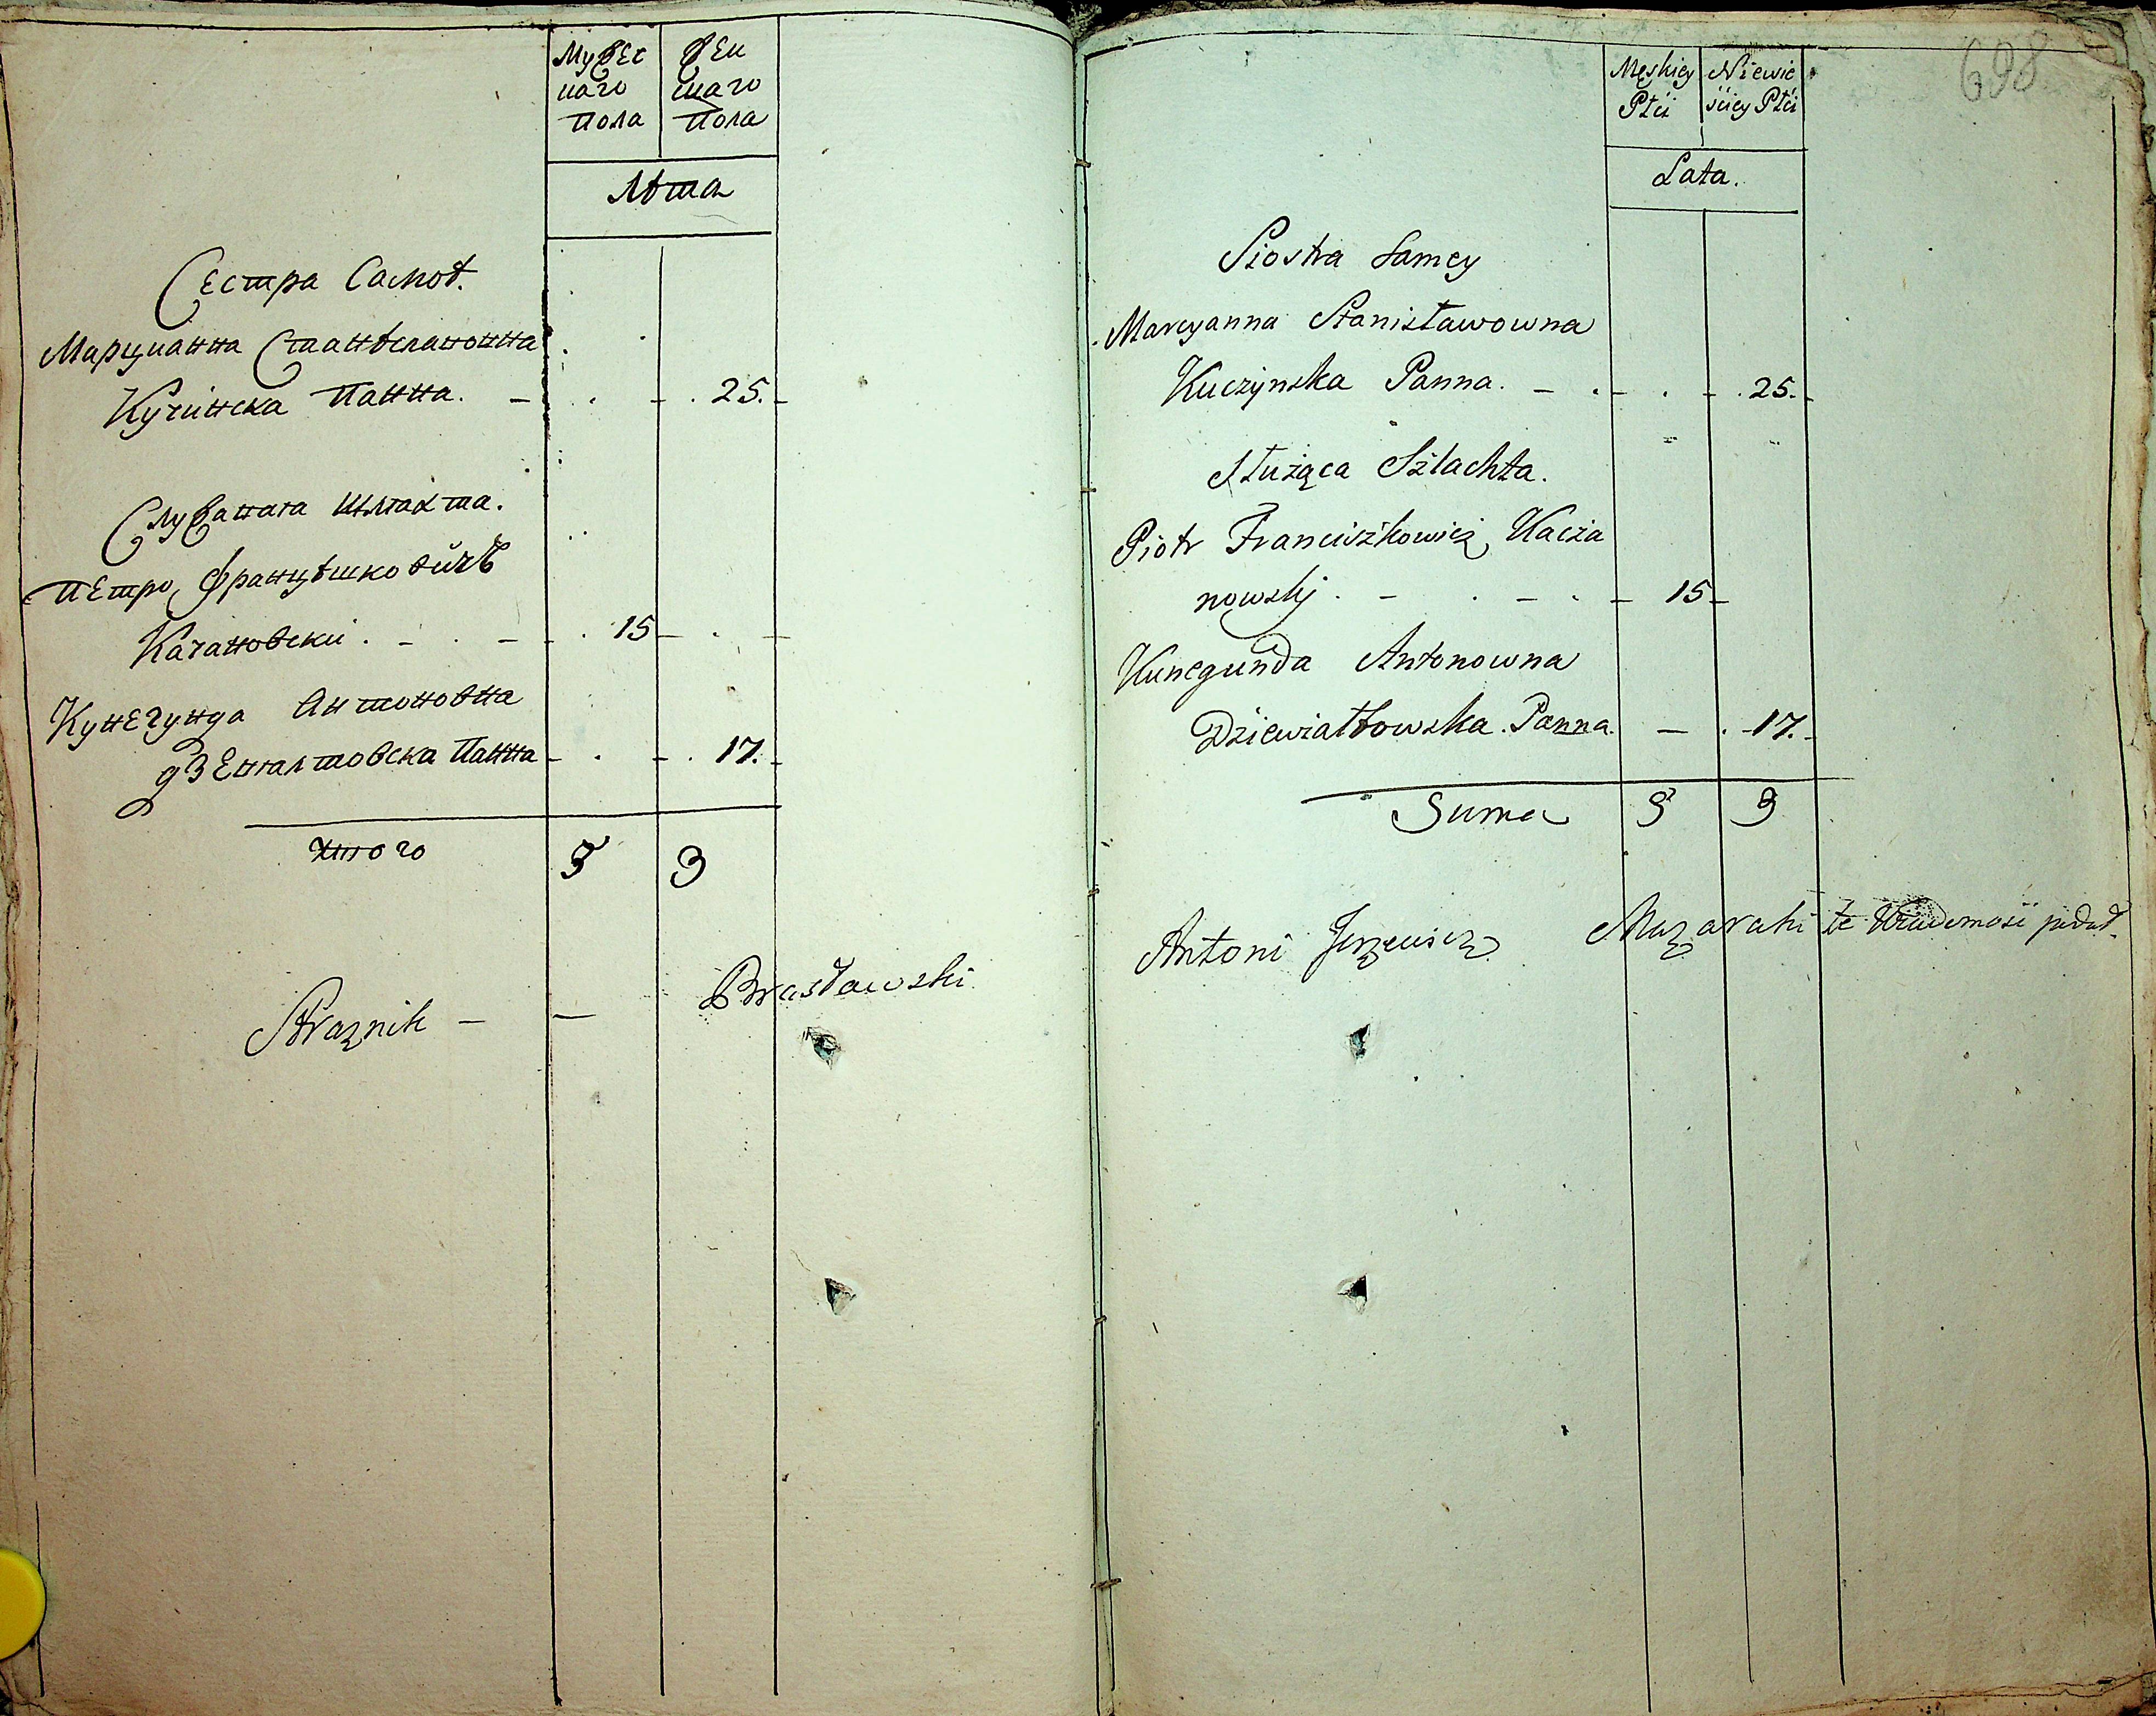 Мужес
каго
пола
Жен
шаго
пола
Лѣта
Сестра Самой.
Марцианна Станѣславовна
Кучинска панна. 25.
Служащая шляхта.
Петро Францѣшковичъ
Качановски. 15
Кунегунда Антоновна
Дзевялтовска Панна 17.
Итого 5 3
Straznik — — Brasławski
698
Męskiey
Płci
Niewie
ściey Płci
Lata.
Siostra Samey
Maryanna Stanisławowna
Kuczynska Panna. 25.
Służąca Szlachta.
Piotr Franciszkowicz Kacza
nowskj. 15
Kunegunda Antonowna
Dziewiałtowska. Panna. 17.
Suma 5 3
Antoni Jerzewicz Mazaraki te Wiadomość podał.